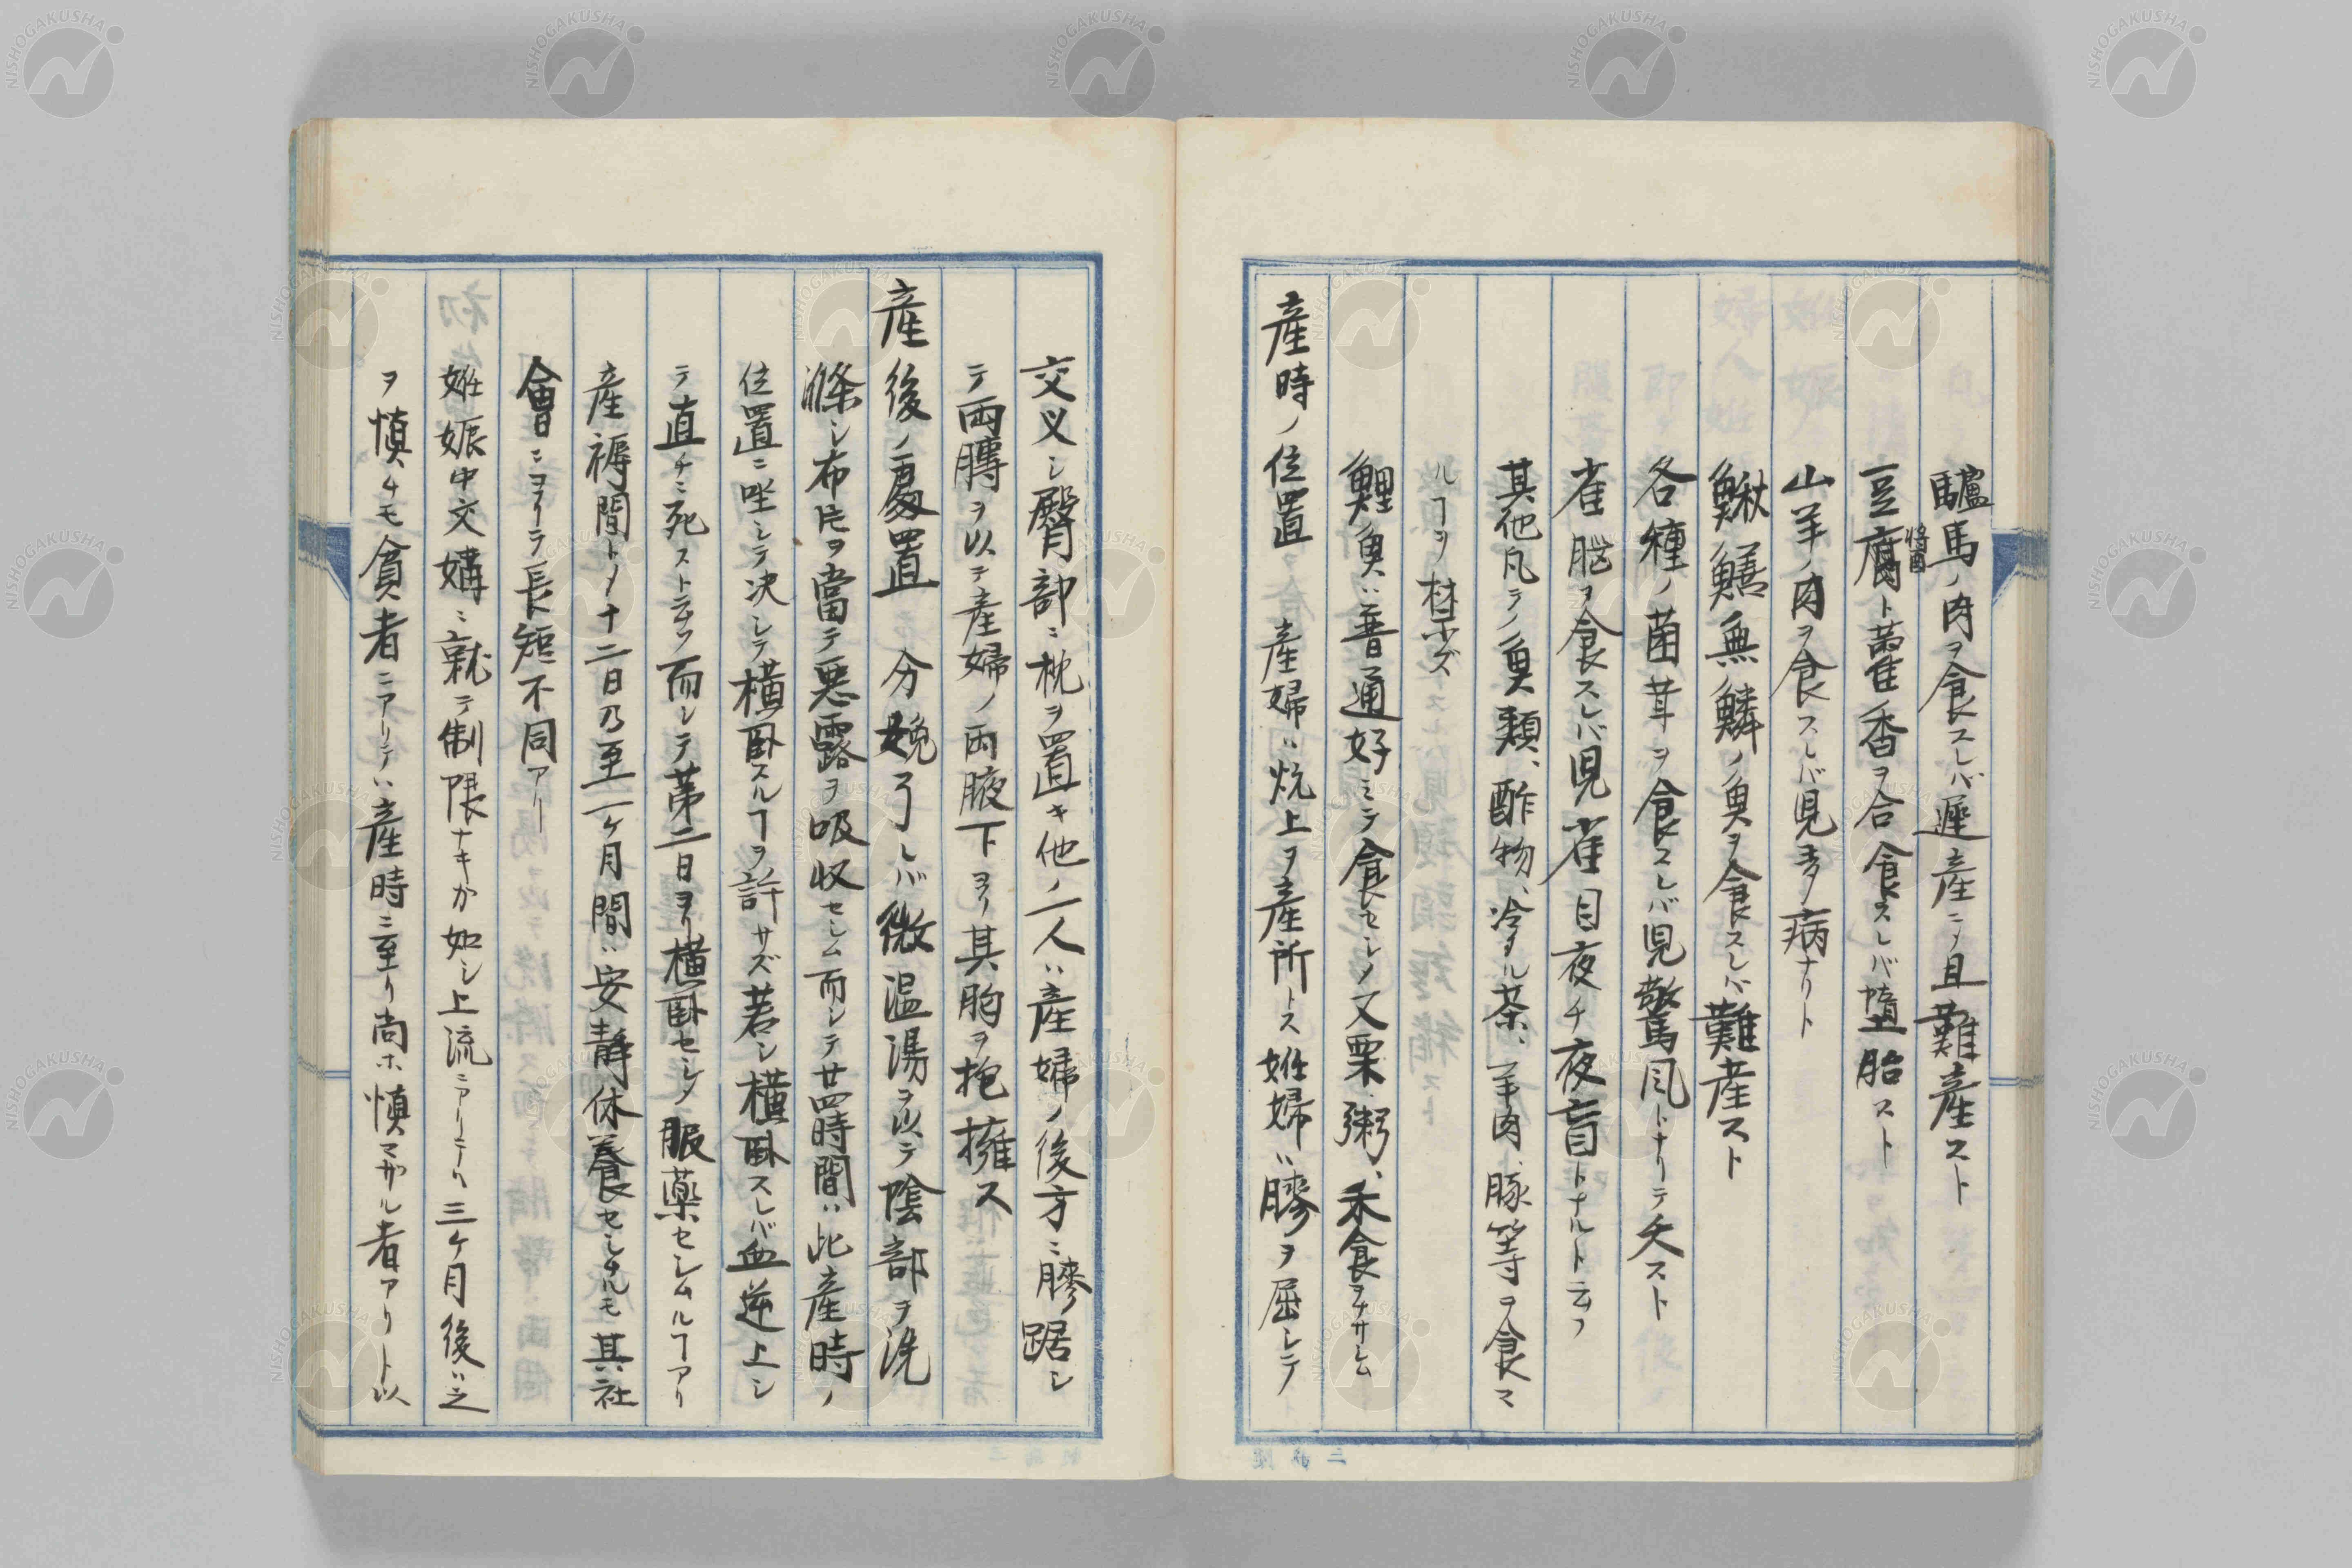 驢馬ノ肉ヲ食スレバ遲産ニメ且難産スト
豆腐醤ト藿香ヲ合食スレバ墮胎スト
山羊ノ肉ヲ食スレバ児多病ナリト
鰍鱔無鱗ノ魚ヲ食スレバ難産スト
各種ノ菌茸ヲ食スレバ児驚風トナリテ夭スト
雀脳ヲ食スレバ児雀目夜チ夜盲トナルト云フ
其他凡テノ魚類、酢物、冷タル茶、羊肉、豚等ヲ食マ
ルヿヲ禁ズ
鯉魚ハ普通好ミテ食セシメ又粟粥、禾食ヲナサシム
産時ノ位置 産婦ハ炕上ヲ産所トス妊婦ハ膝ヲ屈シテ
交叉シ臀部ニ枕ヲ置キ他ノ一人ハ産婦ノ後方ニ膝踞シ
テ両膊ヲ以テ産婦ノ両腋下ヨリ其胸ヲ抱擁ス
産後ノ處置 分娩了レバ微温湯ヲ以テ陰部ヲ洗
滌シ布片ヲ當テ悪露ヲ吸収セシム而シテ廿四時間ハ此産時ノ
位置ニ坐シテ决シテ横臥スルヿヲ許サズ若シ横臥スレバ血逆上シ
テ直チニ死スト云フ而シテ第二日ヨリ横臥セシメ服薬セシムルヿアリ
産褥間トメ十二日乃至一ケ月間ハ安静休養セシムルモ其社
會ニヨリテ長短不同アリ
妊娠中交媾ニ就テ制限ナキカ如シ上流ニアリテハ三ケ月後ハ之
ヲ慎ムモ貧者ニアリテハ産時ニ至リ尚ホ慎マザル者アリト以
NISHOGAKUSHA